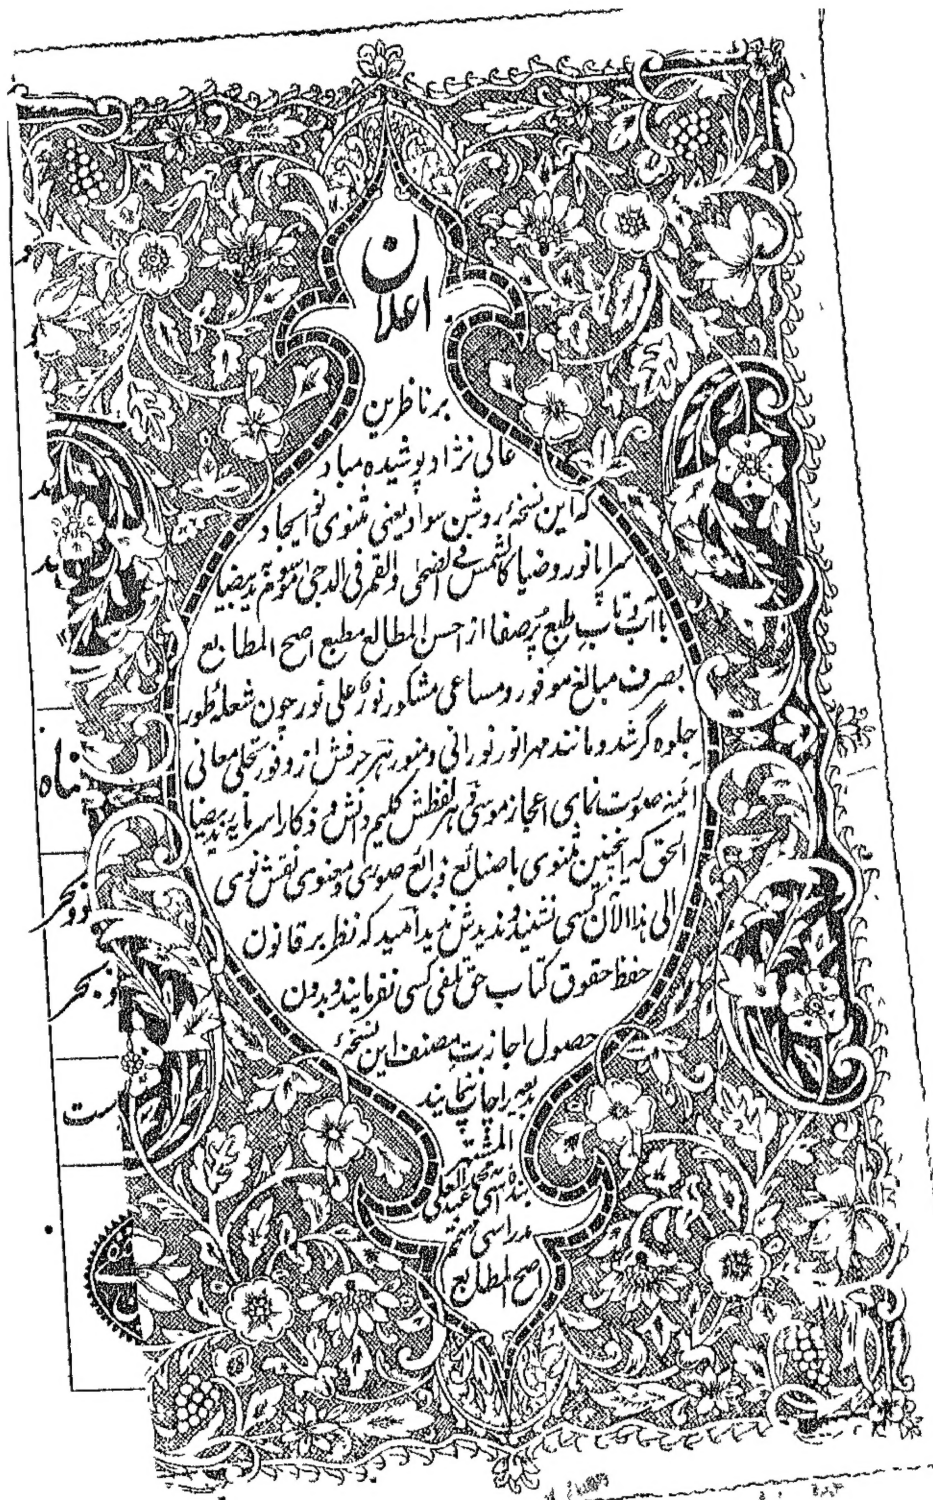 اعلان
بر ناظرین
عالی نژاد پوشیده مباد
که این نسخهٔ روشن سواد یعنی مثنوی نو ایجاد
سراپا نور و ضیا کالشمس فی الضحی والقمر فی الدجی ید بیضا
با آب و تاب طبع پرصفا از احسن المطالع مطبع اصح المطابع
بصرف مبالغ موفور و مساعی مشکور نورٌ علی نور چون شعلهٔ طور
جلوه گر شد و مانند مهر انور نورانی و منور هر حرفش از وفور تجلی معانی
آئینه صورت نمای اعجاز موسی و هر لفظش کلیم دانش و ذکا را سرمایه ید بیضا
الحق که اینچنین مثنوی با صنائع و بدائع صوری و معنوی نقش نوی
الی هذا الآن کسی نشنید و ندید امید که نظر بر قانون
حفظ حقوق کتاب حق تلفی کسی نفرمایند و بدون
حصول اجازت مصنف این نسخهٔ
را چاپ ننمایند
المشتهر
بنده محمد عبدالعلی
مدراسی مهتمم
اصح المطابع
ماه
ست